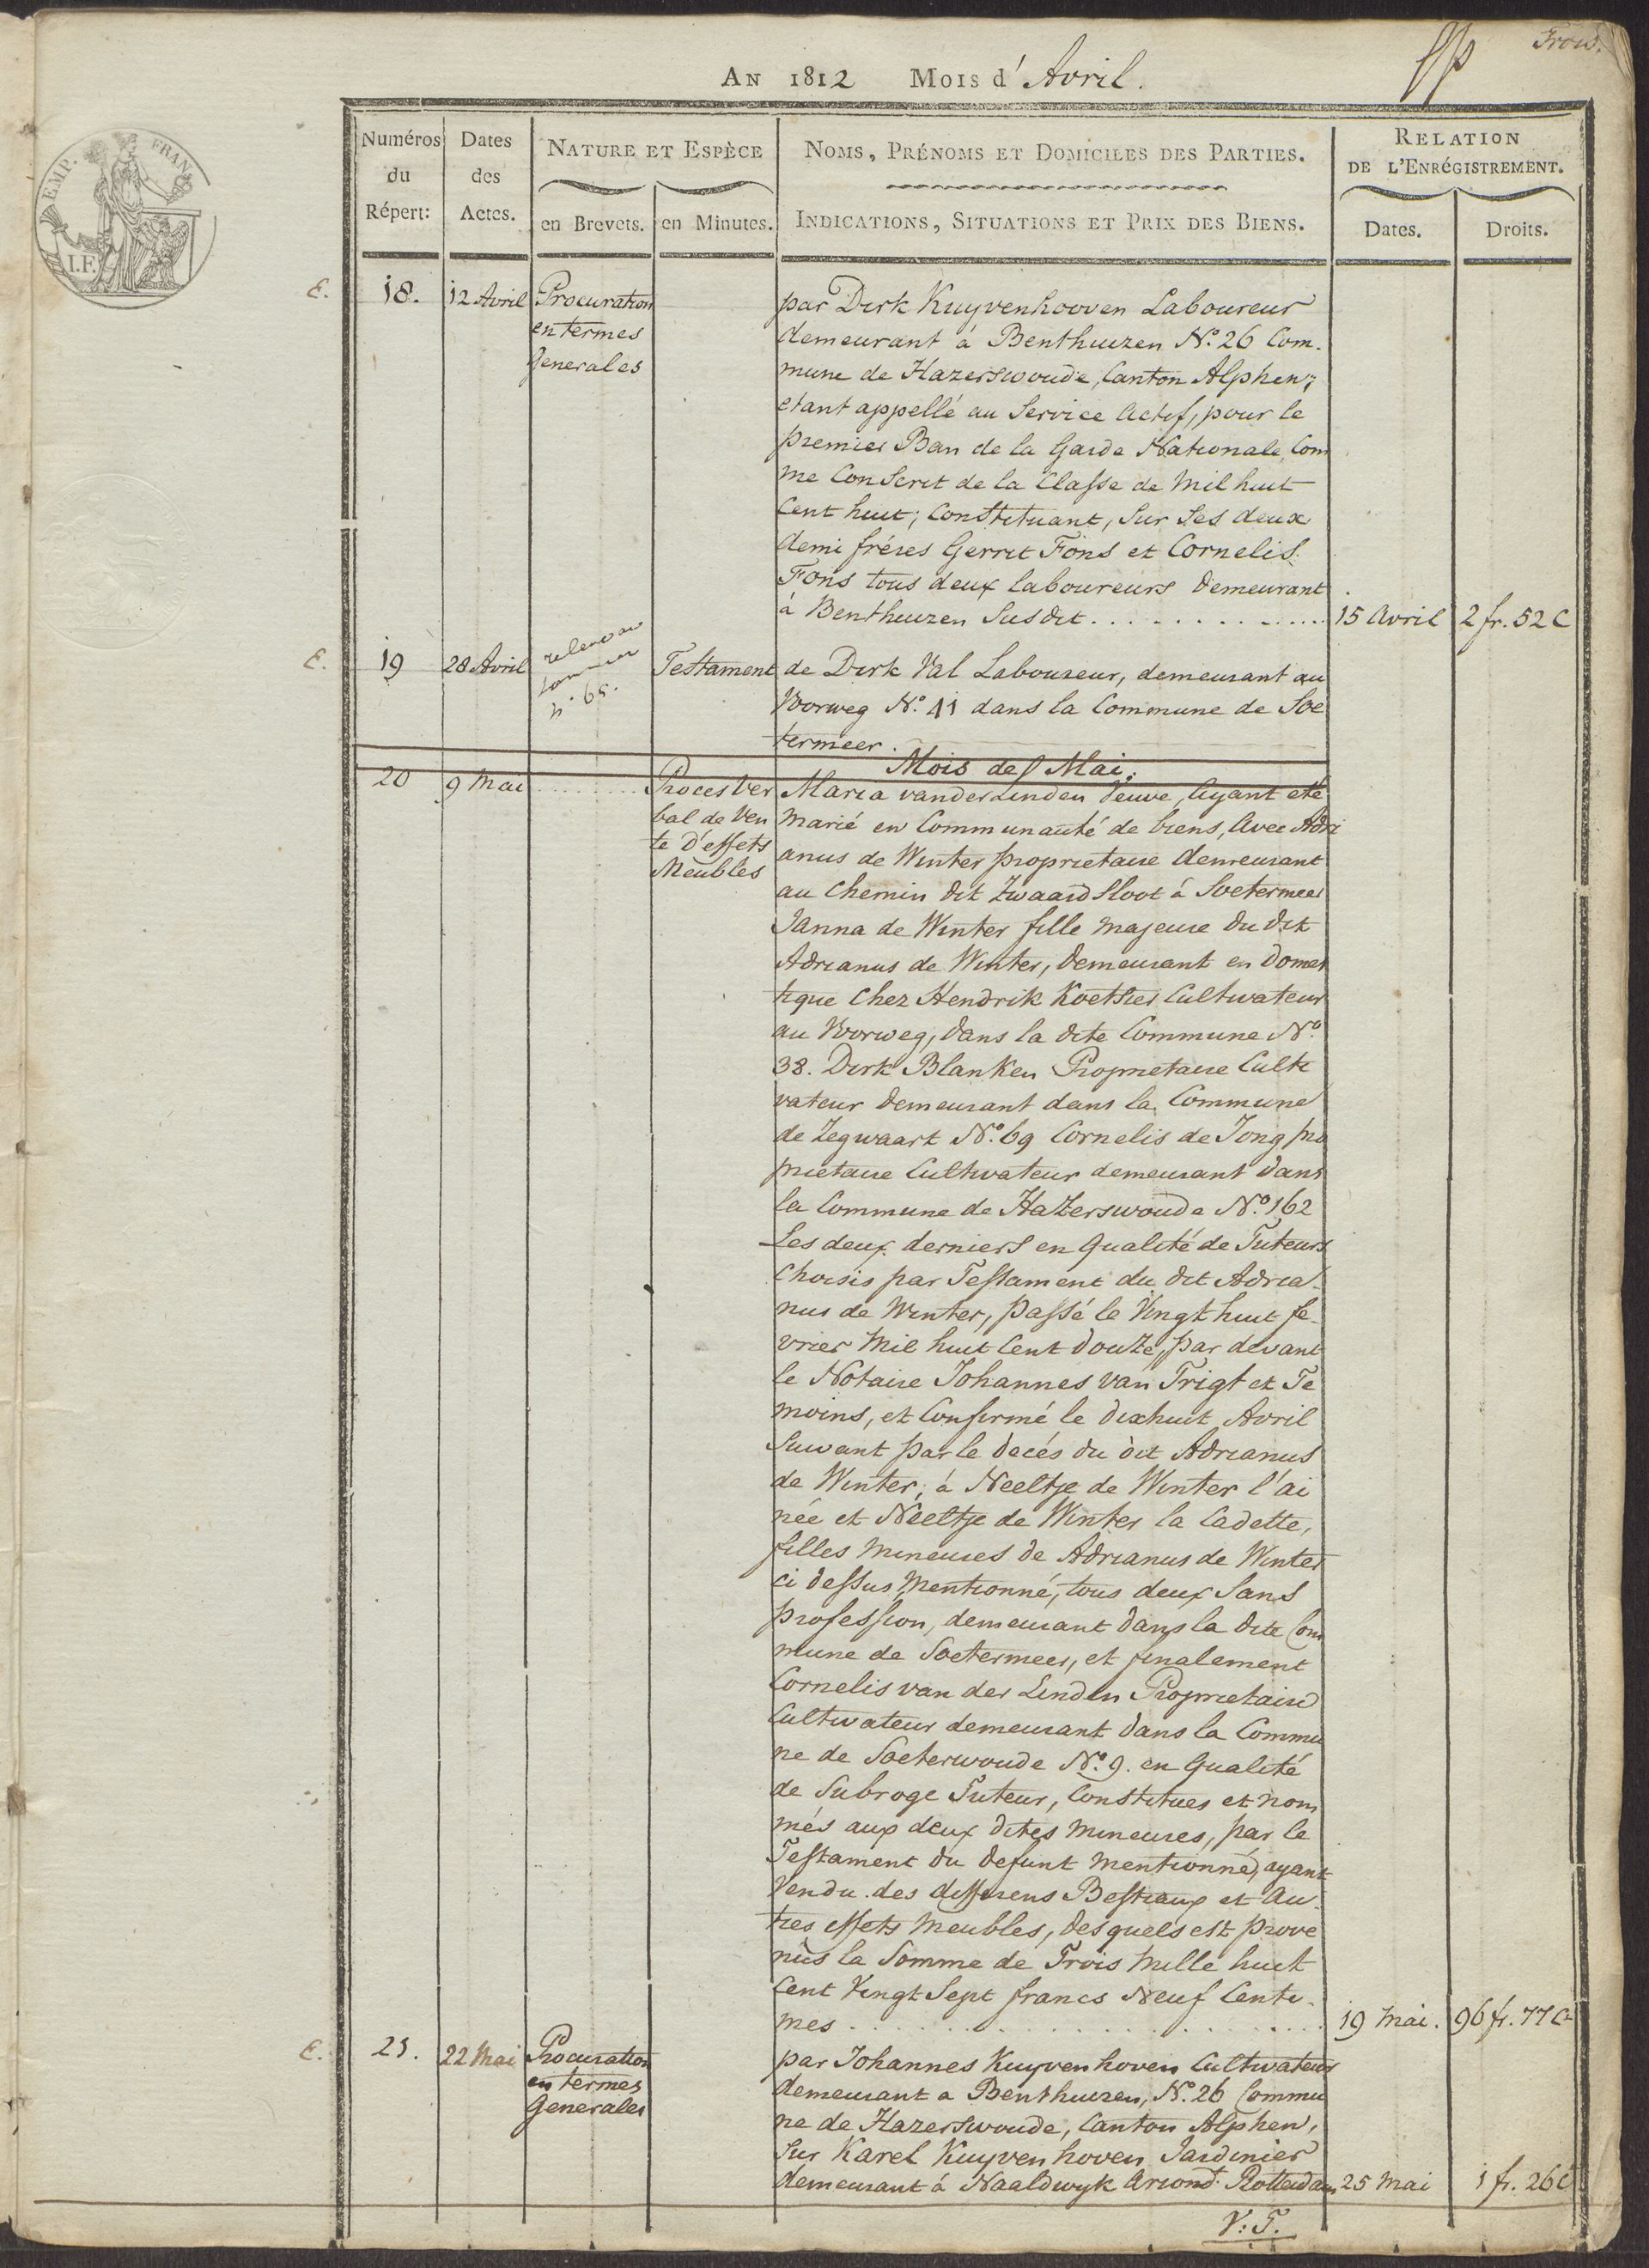 Trois.
AN 1812 MOIS d'Avril.
EMP. FRAN
I.F.
Numéros du Répert:
Dates des Actes.
NATURE ET ESPÈCE
en Brevets. en Minutes.
NOMS, PRÉNOMS ET DOMICILES DES PARTIES.
INDICATIONS, SITUATIONS ET PRIX DES BIENS.
RELATION
DE L'ENRÉGISTREMENT.
Dates. Droits.
E. 18. 12 Avril Procuration par Dirk Kuyvenhooven Laboureur
en termes demeurant à Benthuizen No. 26 Com-
Generales mune de Hazerswoude, Canton Alphen;
etant appellé au Service Actif, pour le
premier Ban de la Garde Nationale, Com
me Conscrit de la Classe de Mil huit
Cent huit; Constituant, Sur Ses deux
demi fréres Gerrit Fons et Cornelis
Fons tous deux laboureurs demeurant
à Benthuizen Susdit . . . . . . . . . . . . 15 Avril 2 fr. 52 C
E. 19 28 Avril Testament de Dirk Val Laboureur, demeurant au
Voorweg No. 41 dans la Commune de Soe
termeer.
Mois de Mai.
20 9 Mai . . . . . . . . Proces Ver Maria vander Linden Veuve, Ayant eté
bal de Ven Marié en Communauté de biens, Avec Adri
te d'effets anus de Winter proprietaire demeurant
Meubles au Chemin dit Zwaardsloot à Soetermeer
Janna de Winter fille majeure du dit
Adrianus de Winter, demeurant en Domes
tique Chez Hendrik Koetsier Cultivateur
au Voorweg, dans la dite Commune No.
38. Dirk Blanken Proprietaire Culti
vateur demeurant dans la Commune
de Zegwaart No. 69 Cornelis de Jong pro
prietaire Cultivateur demeurant dans
la Commune de Hazerswoude No. 162
Les deux derniers en Qualité de Tuteurs
Choisis par Testament du dit Adria-
nus de Winter, passé le Vingt huit fe-
vrier Mil huit Cent douze, par devant
le Notaire Johannes van Trigt et Te
moins, et Confirmé le dixhuit Avril
Suivant par le decés du dit Adrianus
de Winter, à Neeltje de Winter l'ai
née et Neeltje de Winter la Cadette,
filles mineures de Adrianus de Winter
ci dessus Mentionné, tous deux Sans
profession, demeurant dans la dite Com
mune de Soetermeer, et finalement
Cornelis van der Linden Proprietaire
Cultivateur demeurant dans la Commu
ne de Soeterwoude No. 9. en Qualité
de Subroge Tuteur, Constitues et nom
més aux deux dites mineures, par le
Testament du defunt mentionné, ayant
Vendu des differens Bestiaux et Au-
tres effets Meubles, desquels est prove
nus la Somme de Trois Mille huit
Cent Vingt Sept francs Neuf Centi-
mes . . . . . . . . . . . . 19 Mai. 96 fr. 77 C
E. 21. 22 Mai Procuration par Johannes Kuyvenhoven Cultivateur
en termes demeurant a Benthuizen, No. 26 Commu
Generales ne de Hazerswoude, Canton Alphen,
Sur Karel Kuyvenhoven Jardinier
demeurant à Naaldwyk Arrond. Rotterdam 25 Mai 1 fr. 26 C
V: T.